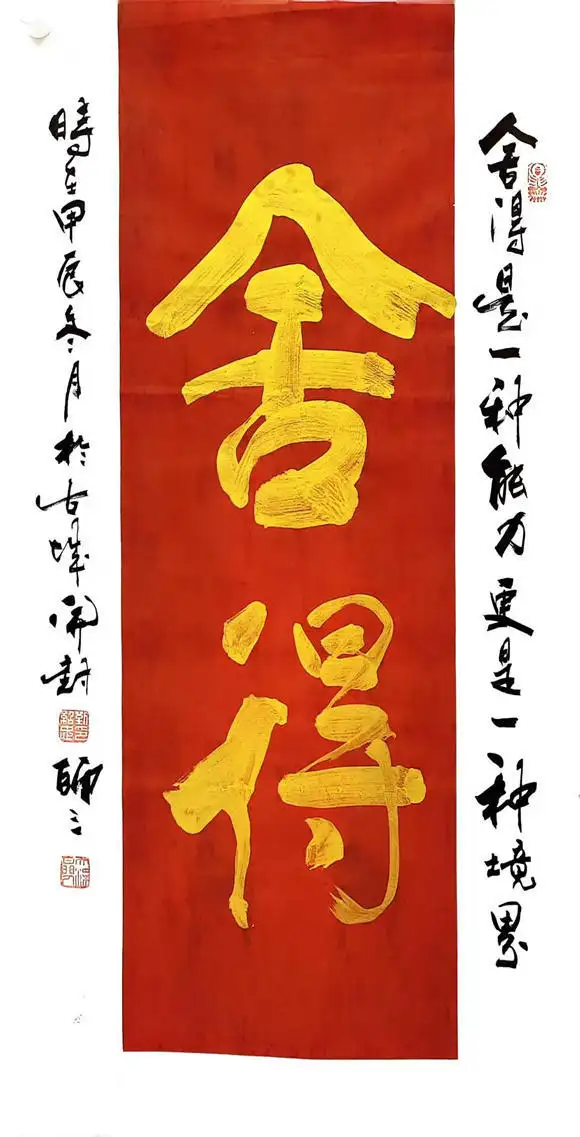 舍得是一种能力更是一种境界
舍得
時在甲辰冬月於古城開封